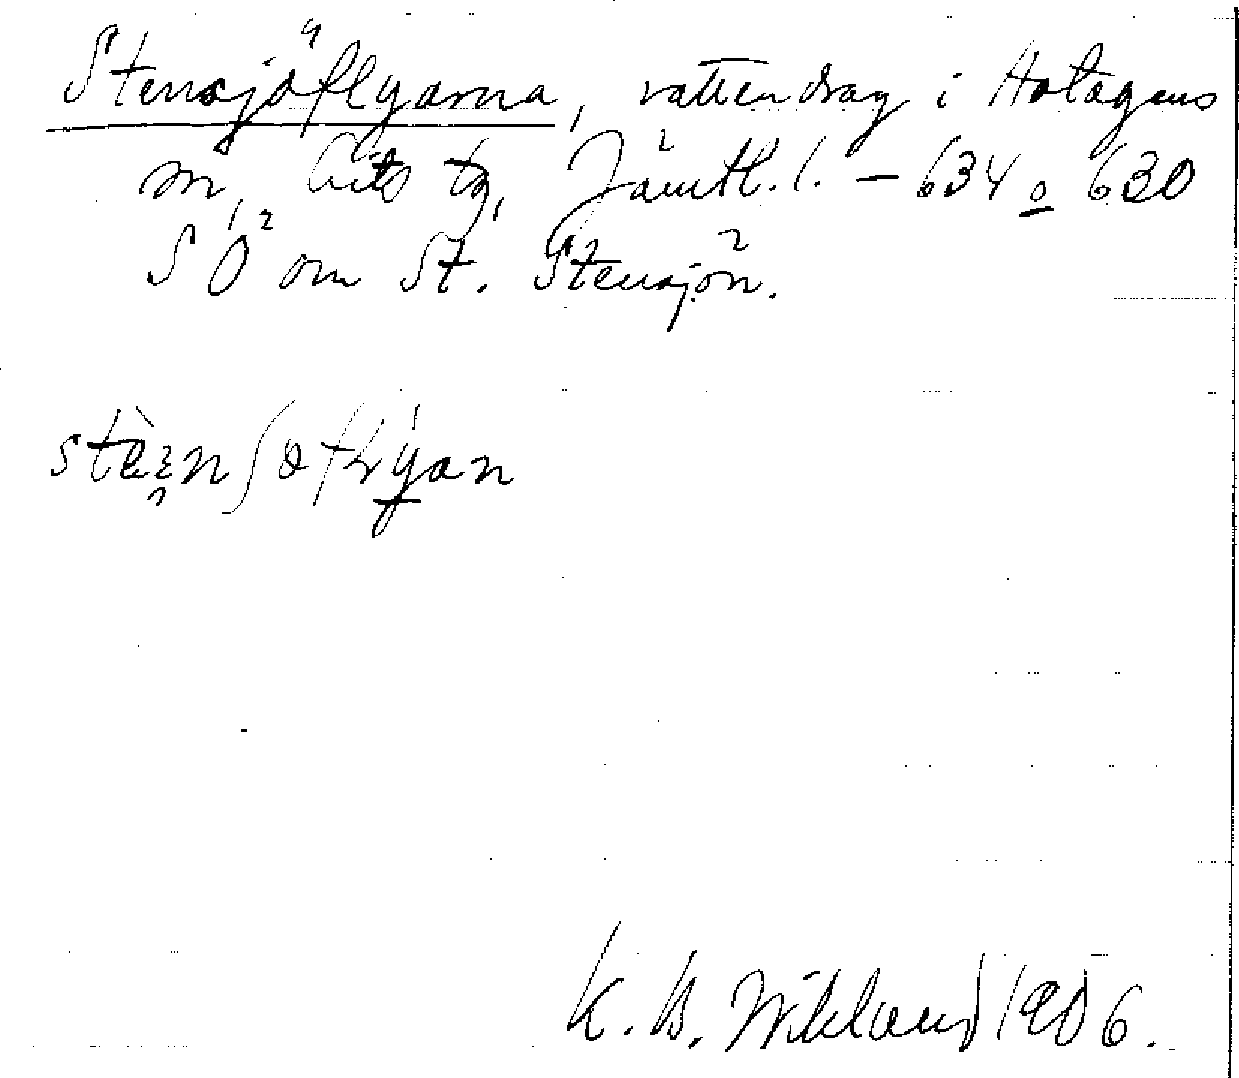 Stensjöflyarna, vattendrag i Hotagens
sn, Lits tg, Jämtl. l. – 634 o 630
SÖ om St. Stensjön.
K. B. Wiklund 1906.